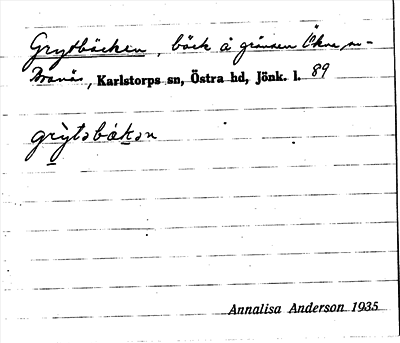 Grytbäcken, bäck å gränsen Ökna sn-
, Karlstorps sn, Östra hd, Jönk. l. 89
grỳtəbäkən
Annalisa Anderson 1935